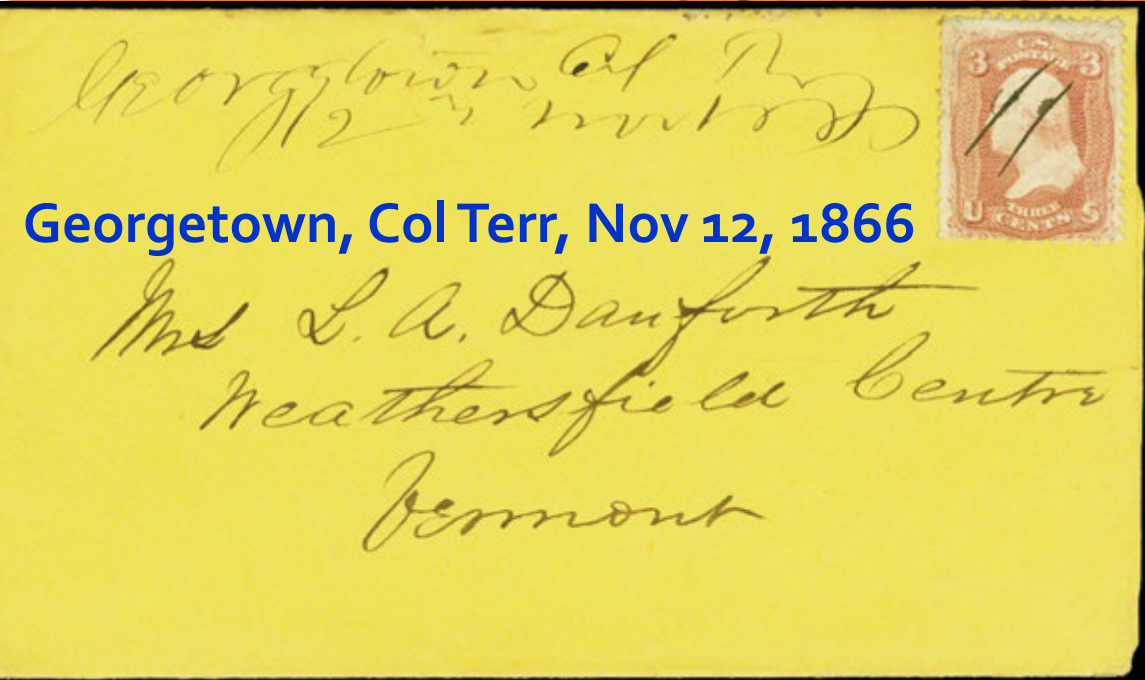 Georgetown Col Ty
12th Nov
3 U.S. POSTAGE 3
U THREE CENTS S
Georgetown, Col Terr, Nov 12, 1866
Mrs L. A. Danforth
Weathersfield Centre
Vermont